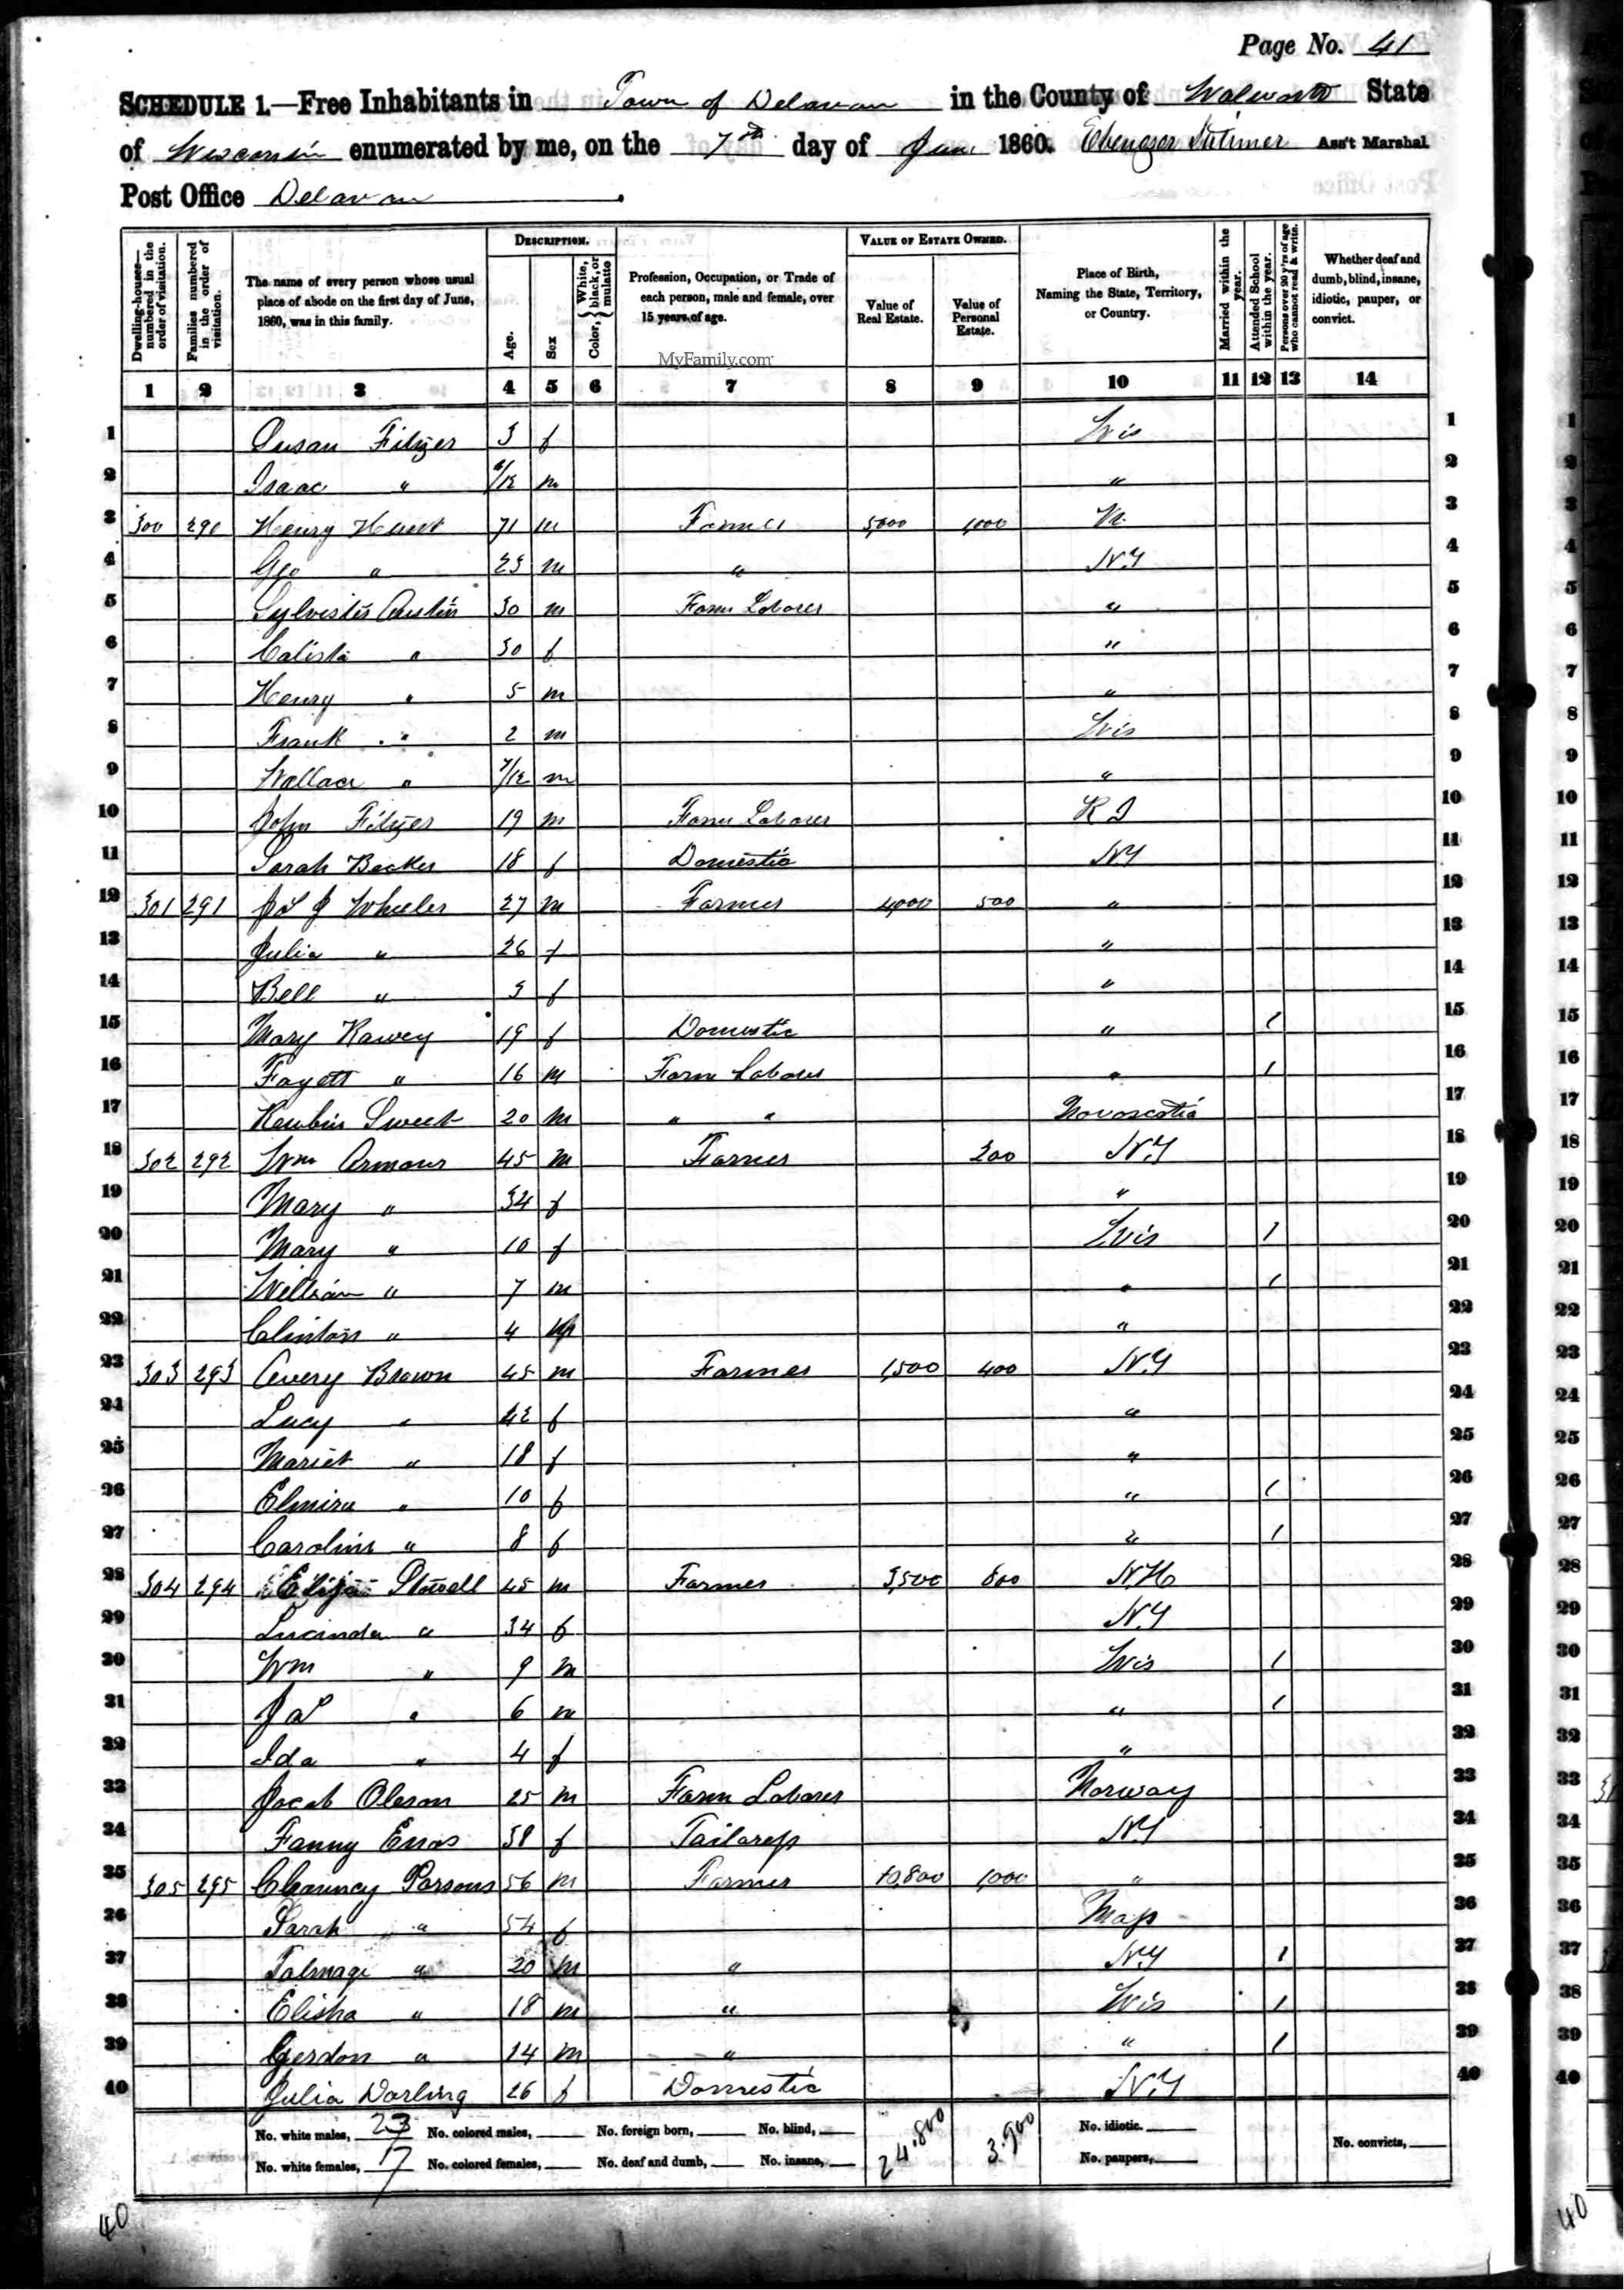 Page No. 41
SCHEDULE 1.—Free Inhabitants in Town of Delavan in the County of Walworth State
of Wisconsin enumerated by me, on the 7th day of June 1860. Ebenezer Latimer Ass't Marshal
Post Office Delavan
Dwelling-houses—numbered in the order of visitation. Families numbered in the order of visitation. The name of every person whose usual place of abode on the first day of June, 1860, was in this family. DESCRIPTION. Age. Sex Color, { White, black, or mulatto Profession, Occupation, or Trade of each person, male and female, over 15 years of age. VALUE OF ESTATE OWNED. Value of Real Estate. Value of Personal Estate. Place of Birth, Naming the State, Territory, or Country. Married within the year. Attended School within the year. Persons over 20 y'rs of age who cannot read & write. Whether deaf and dumb, blind, insane, idiotic, pauper, or convict.
MyFamily.com
1 2 3 4 5 6 7 8 9 10 11 12 13 14
1 Susan Filyer 3 f Wis 1
2 Isaac " /12 m " 2
3 300 290 Henry Hunt 71 m Farmer 5,000 1,000 3
4 Geo " 23 m " N.Y 4
5 Sylvester Austin 30 m Farm Laborer " 5
6 Calista " 30 f " 6
7 Henry " 5 m " 7
8 Frank " 2 m Wis 8
9 Wallace " 7/12 m " 9
10 John Filyer 19 m Farm Laborer R I 10
11 Sarah Becker 18 f Domestic N.Y 11
12 301 291 J Wheeler 27 m Farmer 4,000 500 " 12
13 Julia " 26 f " 13
14 Bell " 3 f " 14
15 Mary Kawey 19 f Domestic " 1 15
16 Fayett " 16 m Farm Laborer " 1 16
17 Reubin Sweet 20 m " " Novascotia 17
18 302 292 Wm Armour 45 m Farmer 200 N.Y 18
19 Mary " 34 f " 19
20 Mary " 10 f Wis 1 20
21 William " 7 m " 1 21
22 Clinton " 4 m " 22
23 303 293 Avery Brown 45 m Farmer 1,500 400 N.Y 23
24 Lucy " 42 f " 24
25 Mariet " 18 f " 25
26 Elmira " 10 f " 1 26
27 Caroline " 8 f " 1 27
28 304 294 Elija Stowell 45 m Farmer 3,500 800 N.H. 28
29 Lucinda " 34 f N.Y 29
30 Wm " 9 m Wis 1 30
31 " 6 m " 1 31
32 Ida " 4 f " 32
33 Jacob Oleson 25 m Farm Laborer Norway 33
34 Fanny Enos 38 f Tailoress N.Y 34
35 305 295 Chauncy Parsons 56 m Farmer 10,800 1,000 " 35
36 Sarah " 54 f Mass 36
37 Talmage " 20 m " N.Y 1 37
38 Elisha " 18 m " Wis 1 38
39 Gerdon " 14 m " " 1 39
40 Julia Darling 26 f Domestic N.Y 40
No. white males, 23 No. colored males, No. foreign born, No. blind, 24.800 3.900 No. idiotic. No. convicts,
No. white females, 17 No. colored females, No. deaf and dumb, No. insane, No. paupers,
40